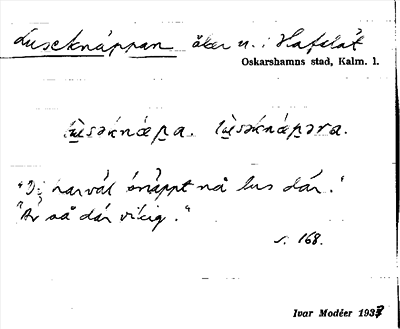 Luseknäppan åker n. i Hafslät
Oskarshamns stad, Kalm. l.
lùsəknæpa. lùsəknæpəra.
"Di har väl knäppt nå lus där."
"Är så där vikig."
s. 168.
Ivar Modéer 1937